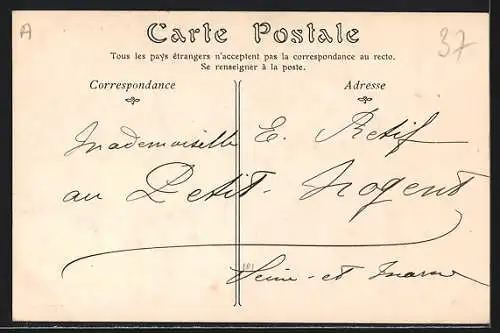 A
37
Carte Postale
Tous les pays étrangers n'acceptent pas la correspondance au recto.
Se renseigner à la poste.
Correspondance
Adresse
Mademoiselle E. Retif
au Petit-Nogent
101
Seine-et-Marne